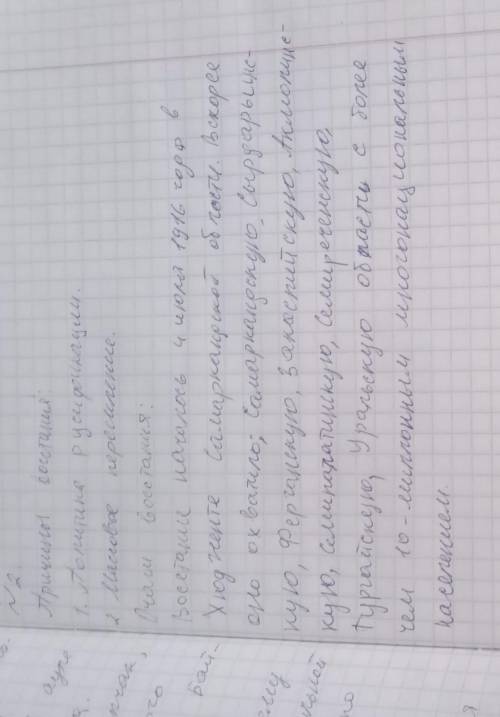 №2.
Причины восстания:
1. Политика русификации.
2. Массовое переселение.
Очаги восстания:
Восстание началось 4 июля 1916 года в
Ходженте Самаркандской области. Вскоре
оно охватило; Самаркандскую, Сырдарьинс-
кую, Ферганскую, Закаспийскую, Акмолинс-
кую, Семипалатинскую, Семиреченскую,
Тургайскую, Уральскую области с более
чем 10-миллионным многонациональным
населением.
ауже
бай-